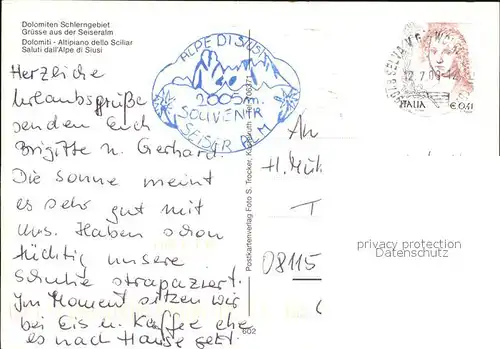 Dolomiten Schlerngebiet
Grüsse aus der Seiseralm
Dolomiti - Altipiano dello Sciliar
Saluti dall'Alpe di Siusi
Herzliche
Urlaubsgrüße
senden Euch
Brigitte u. Gerhard.
Die Sonne meint
es sehr gut mit
uns. Haben schon
tüchtig unsere
Schuhe strapaziert.
Im Moment sitzen wir
bei Eis u. Kaffee ehe
es nach Hause geht.
ALPE DI SIUSI
2005m.
SOUVENIR
SEISER ALM
Postkartenverlag Foto S. Trocker
602
12.7.0
ITALIA
€0,41
An
H.
T
08115
privacy protection
Datenschutz